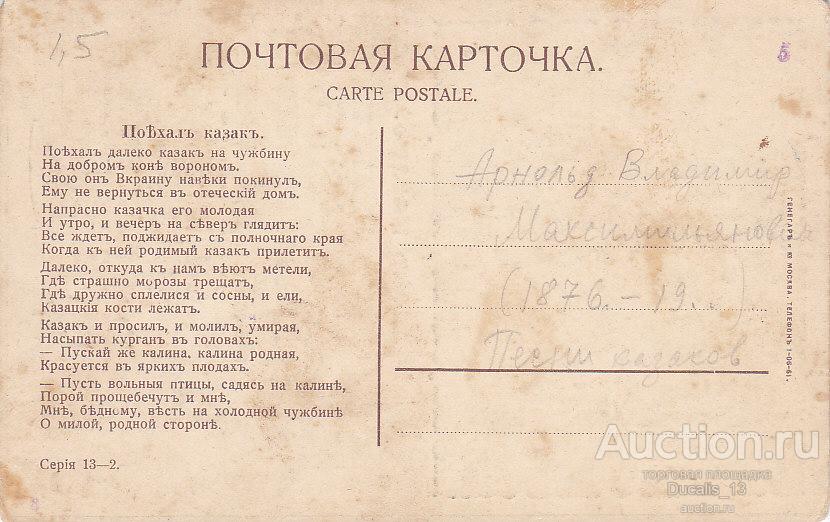 1,5
ПОЧТОВАЯ КАРТОЧКА.
5
CARTE POSTALE.
Поѣхалъ казакъ.
Поѣхалъ далеко казакъ на чужбину
На добромъ конѣ ворономъ.
Свою онъ Вкраину навѣки покинулъ,
Ему не вернуться въ отеческій домъ.
Напрасно казачка его молодая
И утро, и вечеръ на сѣверъ глядитъ:
Все ждетъ, поджидаетъ съ полночнаго края
Когда къ ней родимый казакъ прилетитъ.
Далеко, откуда къ намъ вѣютъ метели,
Гдѣ страшно морозы трещатъ,
Гдѣ дружно сплелися и сосны, и ели,
Казацкія кости лежатъ.
Казакъ и просилъ, и молилъ, умирая,
Насыпать курганъ въ головахъ:
— Пускай же калина, калина родная,
Красуется въ яркихъ плодахъ.
— Пусть вольныя птицы, садясь на калинѣ,
Порой прощебечутъ и мнѣ,
Мнѣ, бѣдному, вѣсть на холодной чужбинѣ
О милой, родной сторонѣ.
Серія 13—2.
Арнольд Владимир
Максимильянович
(1876.-19..)
Песни казаков
ГЕНЕГАРЪ и Кº МОСКВА. ТЕЛЕФОНЪ 1-06-61.
Auction.ru
торговая площадка
Ducalis_13
auction.ru